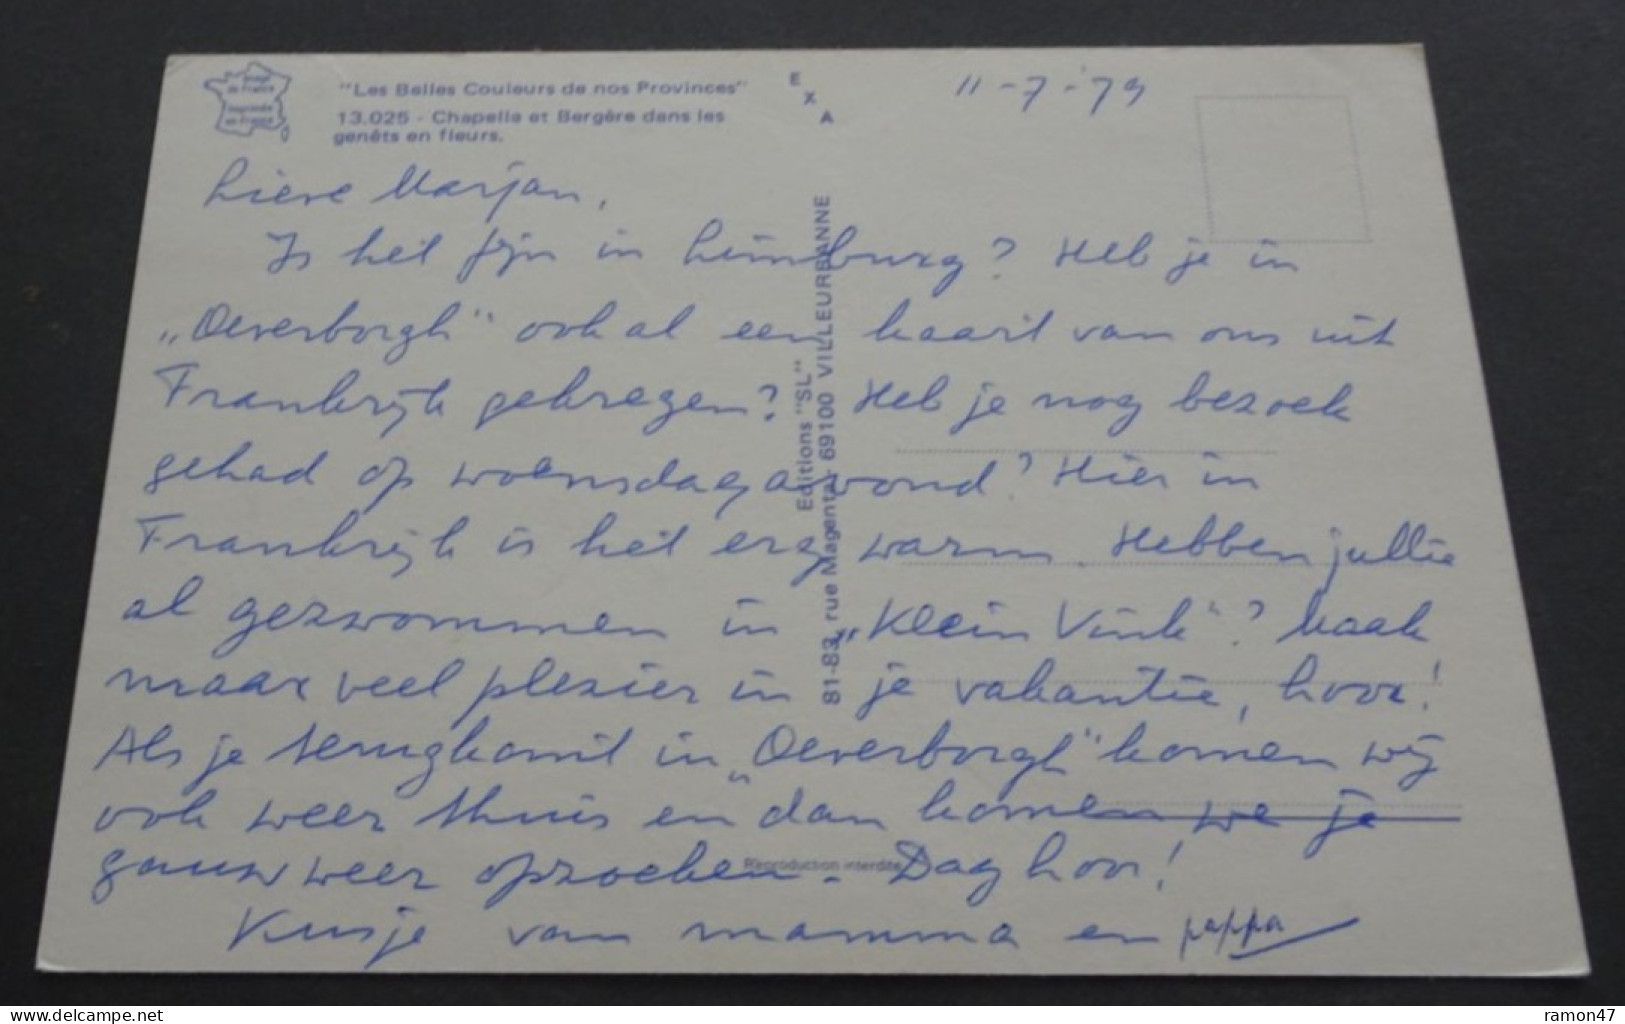 Image
de France
Imprimée
en France
"Les Belles Couleurs de nos Provinces"
13.025 - Chapelle et Bergère dans les
genêts en fleurs.
E
X
A
11-7-'79
Lieve Marjan,
Is het fijn in Limburg? Heb je in
„Oeverborgh" ook al een kaart van ons uit
Frankrijk gekregen? Heb je nog bezoek
gehad op woensdagavond? Hier in
Frankrijk is het erg warm. Hebben jullie
al gezwommen in „Klein Vink"? Maak
maar veel plezier in je vakantie, hoor!
Als je terugkomt in „Oeverborgh" komen wij
ook weer thuis en dan komen we je
gauw weer opzoeken. Dag hoor!
Kusje van mamma en pappa
Editions "SL"
81-83, rue Magenta 69100 VILLEURBANNE
Reproduction interdite
delcampe.net
ramon47